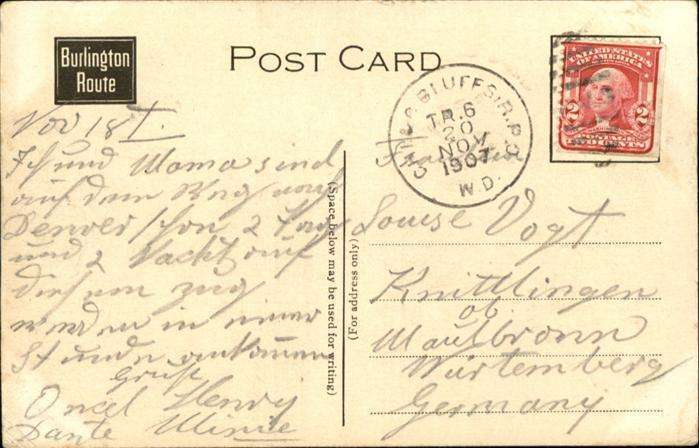 Burlington
Route
POST CARD
UNITED STATES
OF AMERICA
2 2
POSTAGE
TWO CENTS
C. BLUFFS R.P.O.
TR.6
20
NOV
1907
W.D.
Nov 18
Ich und Mama sind
auf dem Weg nach
Denver schon 2 Tag
und 2 Nacht auf
diesem zug
werden in einer
Stunde ankommen
Gruß
Oncel Henry
Tante Minnie
(Space below may be used for writing)
(For address only)
Fraulein
Louise Vogt
Knittlingen
ob.
Maulbronn
Würtemberg
Germany